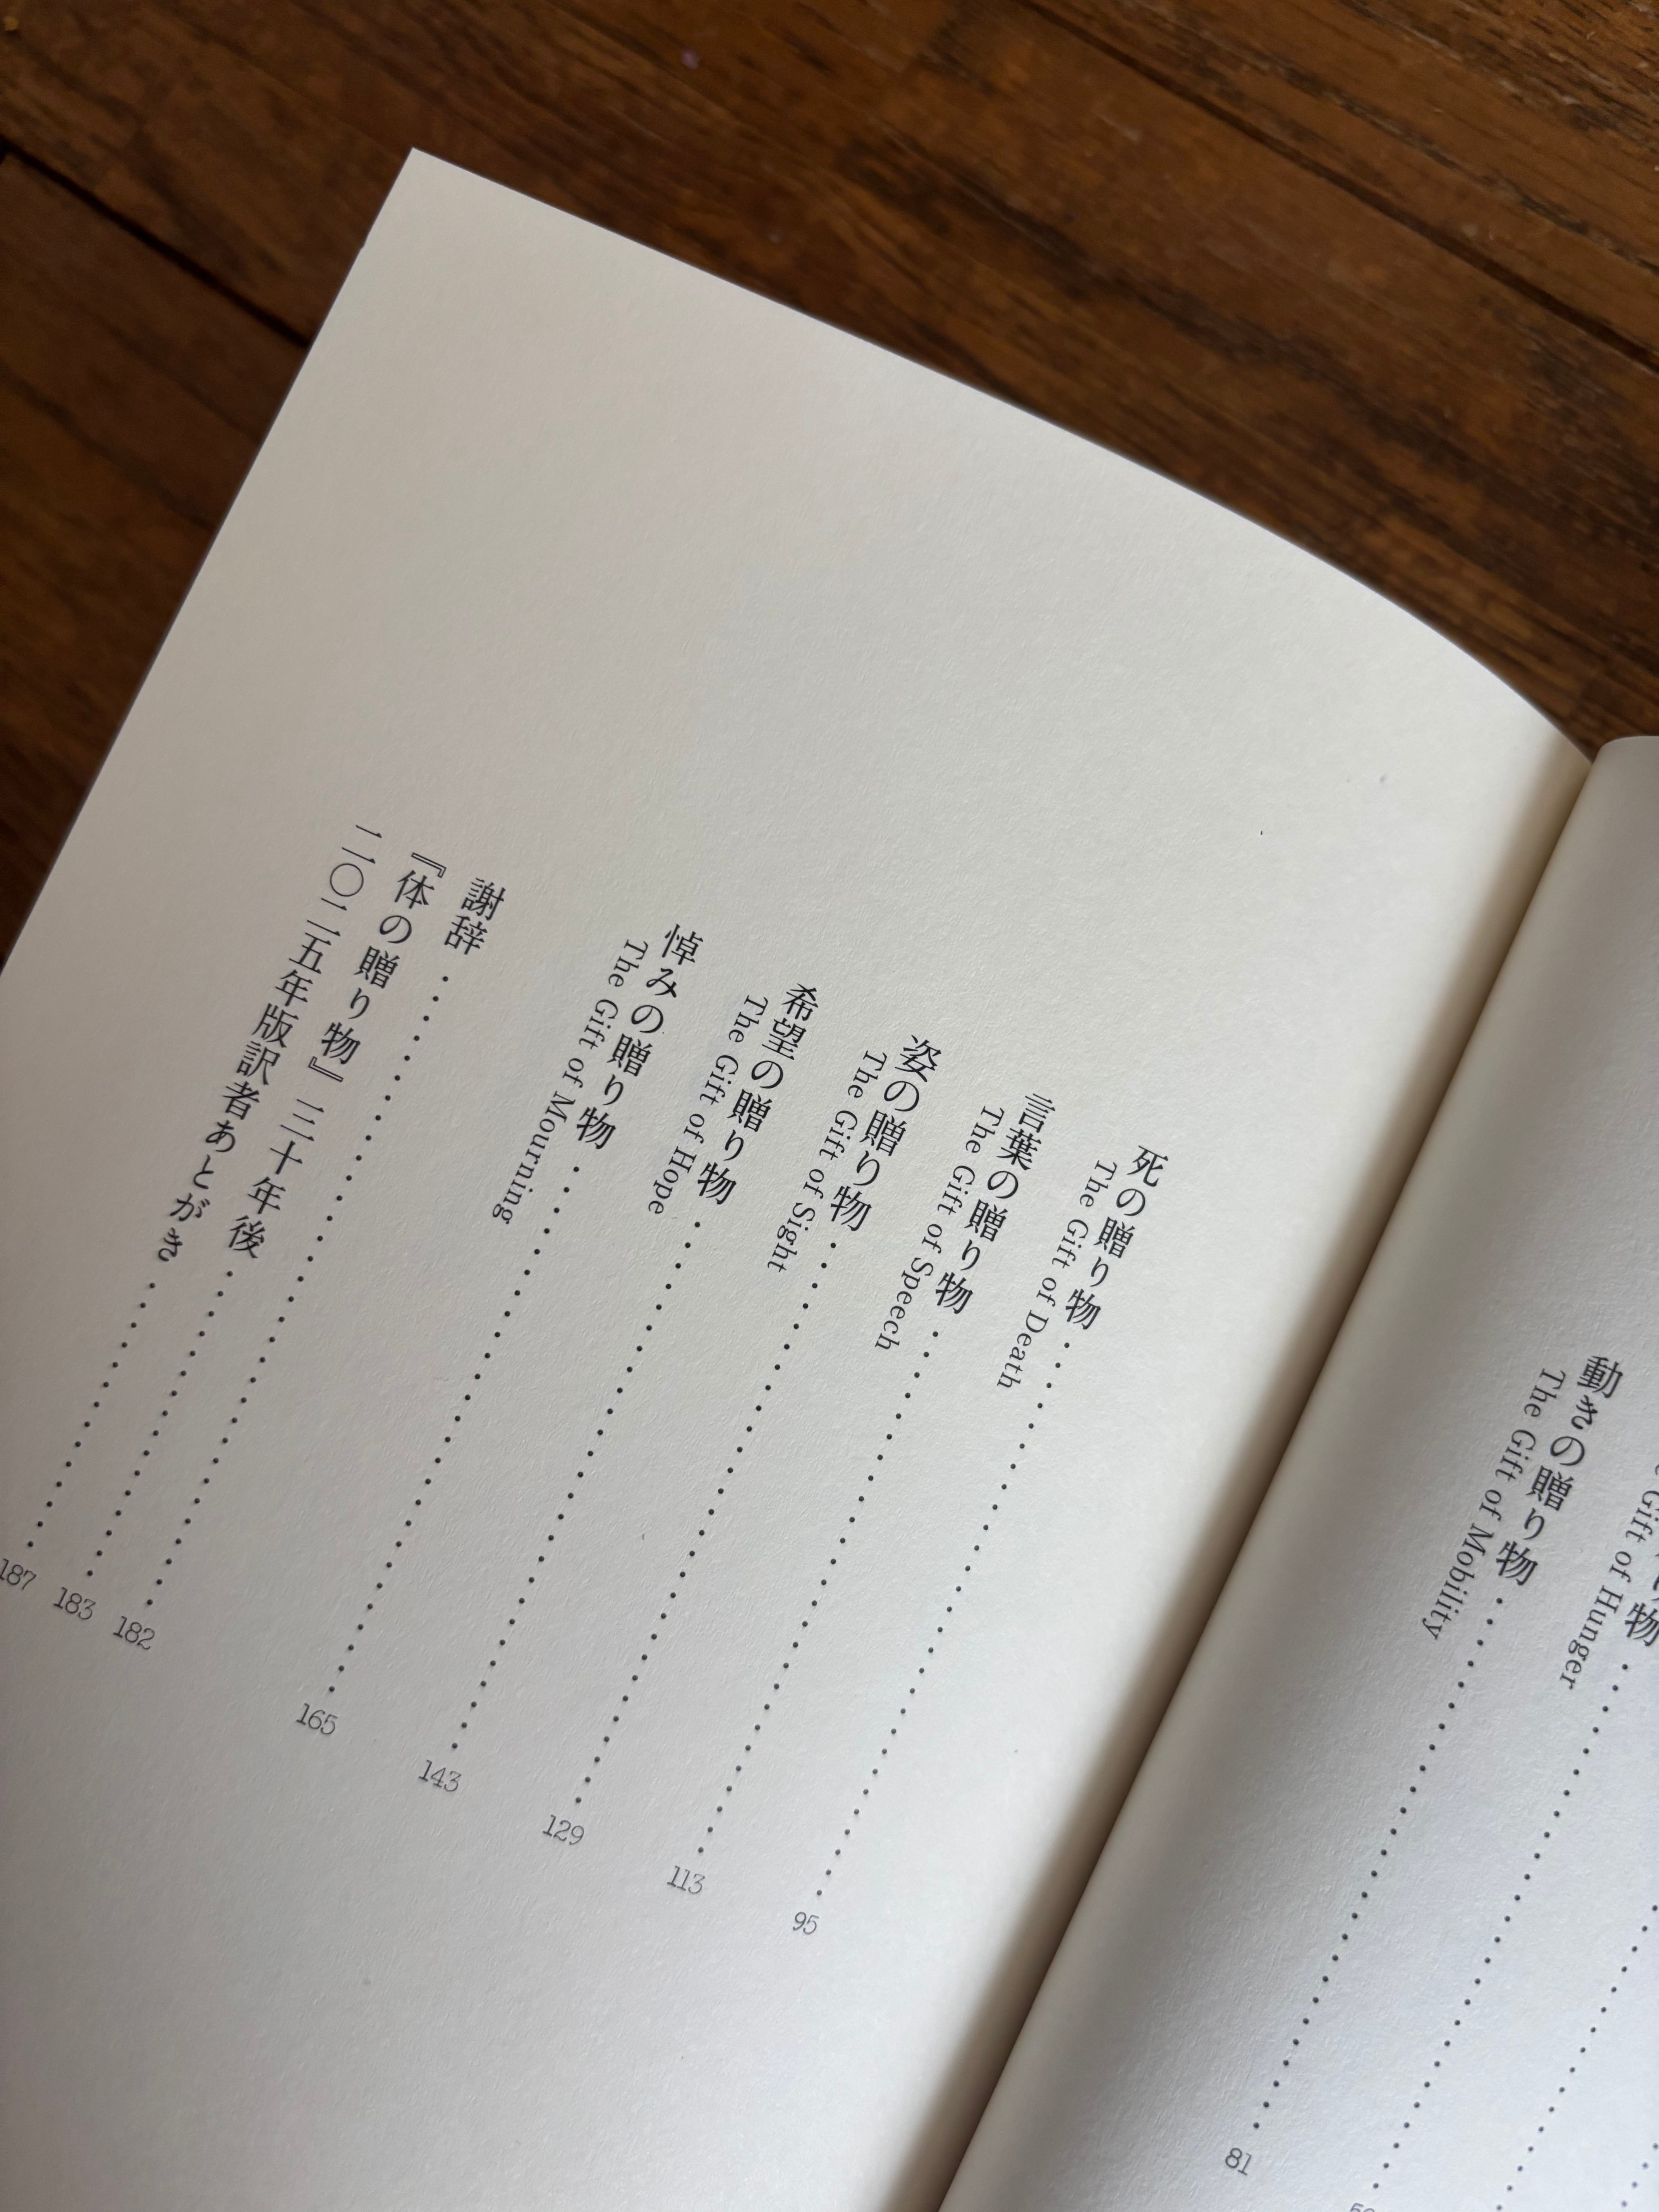 Gift of Hunger
動きの贈り物 81
The Gift of Mobility
死の贈り物 95
The Gift of Death
言葉の贈り物 113
The Gift of Speech
姿の贈り物 129
The Gift of Sight
希望の贈り物 143
The Gift of Hope
悼みの贈り物 165
The Gift of Mourning
謝辞 182
『体の贈り物』三十年後 183
二〇二五年版訳者あとがき 187